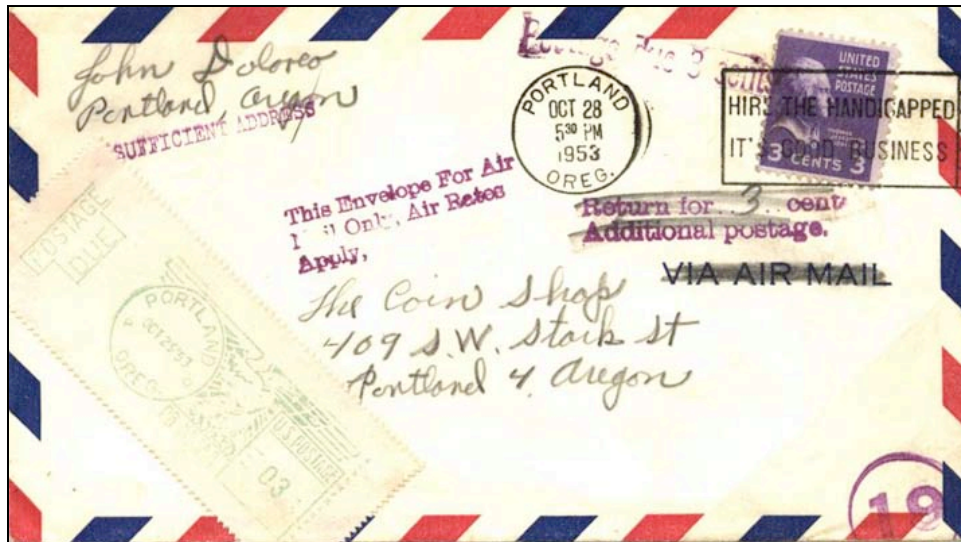 John Dolores
Portland, Oregon
SUFFICIENT ADDRESS
Postage Due 3 cents
UNITED
STATES
POSTAGE
3 CENTS 3
PORTLAND
OCT 28
5 30 PM
1953
OREG.
HIRE THE HANDICAPPED
IT'S GOOD BUSINESS
This Envelope For Air
Mail Only, Air Rates
Apply,
Return for 3 cent
Additional postage.
VIA AIR MAIL
The Coin Shop
409 S.W. Stark St
Portland 4, Oregon
POSTAGE
DUE
PORTLAND
OREG.
U.S. POSTAGE
03
19